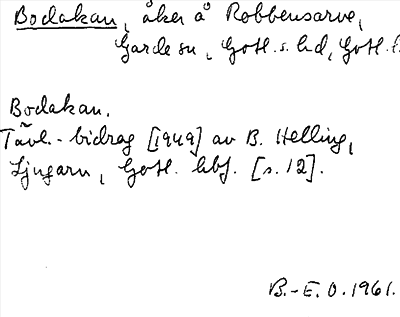 Bodakan, åker å Robbensarve,
Garde sn, Gotl. s. hd, Gotl. l.
Bodakan.
Tävl.-bidrag [1949] av B. Helling,
Ljugarn, Gotl. hbf. [s. 12].
B.-E. O. 1961.